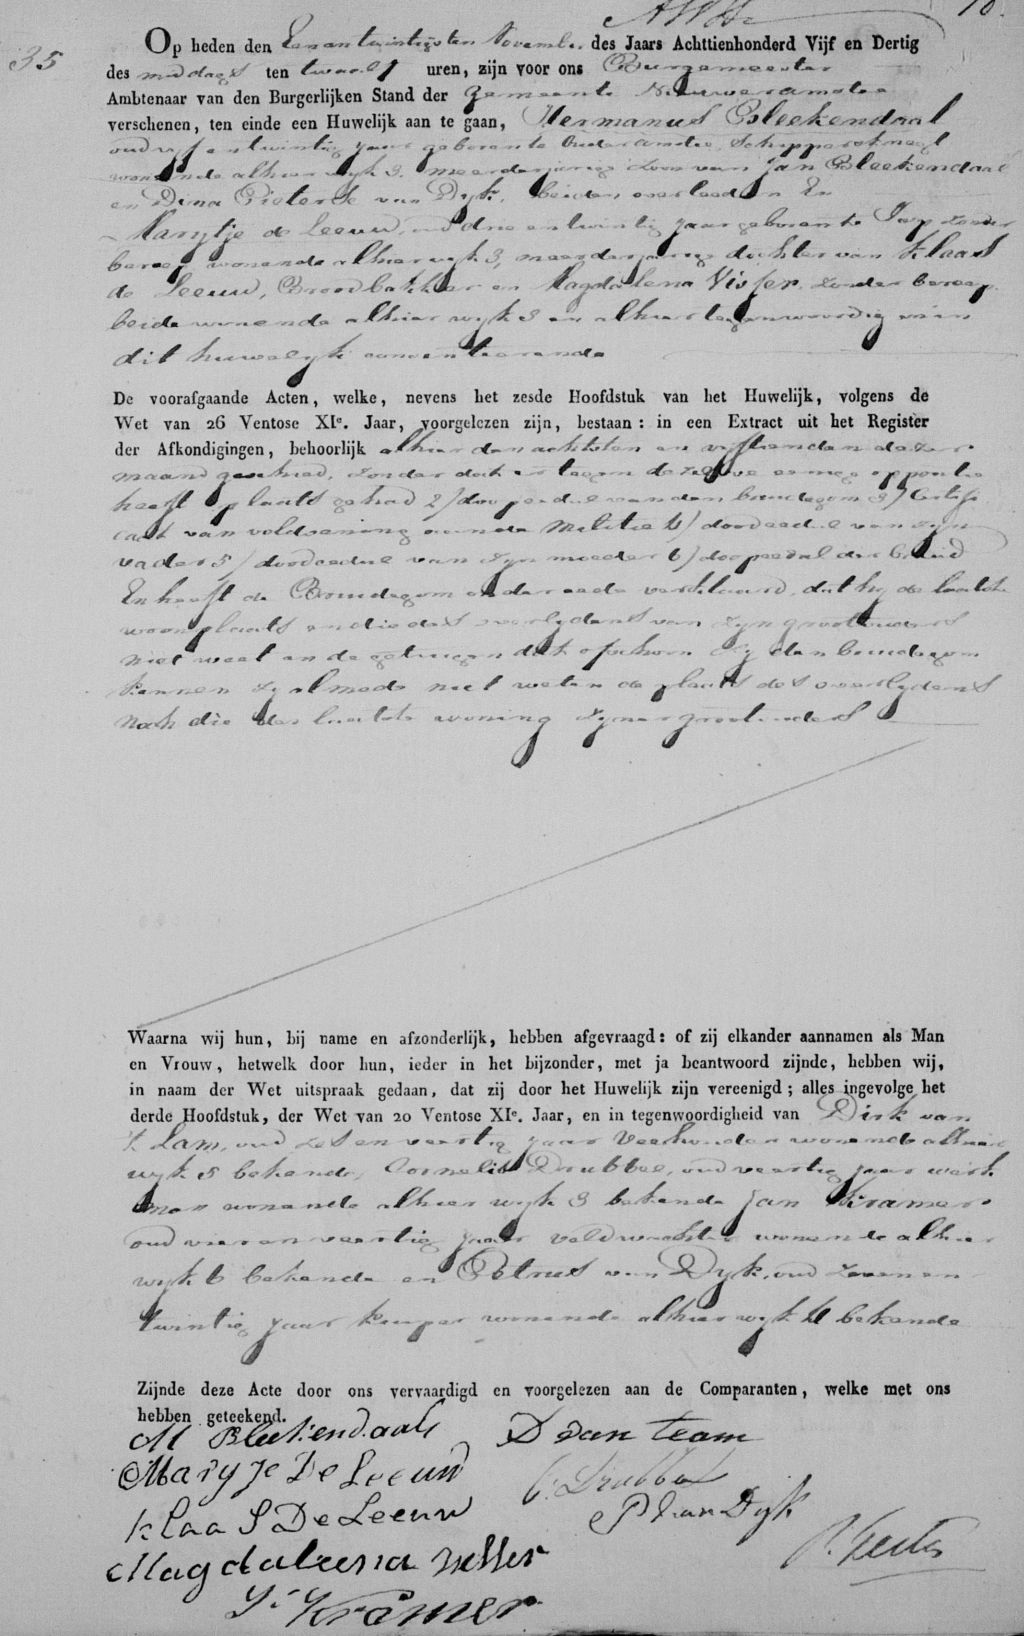 35
Op heden den Een en twintigsten November des Jaars Achttienhonderd Vijf en Dertig
des middags ten twaalf uren, zijn voor ons Burgemeester
Ambtenaar van den Burgerlijken Stand der gemeente Nieuweramstel
verschenen, ten einde een Huwelijk aan te gaan, Hermanus Bleekendaal
oud vyf en twintig jaar geboren te Ouderamstel, Schippersknegt
wonende alhier wyk 3, meerderjarig zoon van Jan Bleekendaal
en Dina Pieterse van Dyk, beiden overleeden En
Marytje de Leeuw, oud drie en twintig jaar geboren te Jaap zonder
beroep wonende alhier wyk 3, meerderjarige dochter van Klaas
de Leeuw, Broodbakker en Magdalena Visser, zonder beroep
beide wonende alhier wyk 3 en alhier tegenwoordig en in
dit huwelyk consenteerende
De voorafgaande Acten, welke, nevens het zesde Hoofdstuk van het Huwelijk, volgens de
Wet van 26 Ventose XIe. Jaar, voorgelezen zijn, bestaan: in een Extract uit het Register
der Afkondigingen, behoorlijk alhier den achtsten en vyftienden dezer
maand geschied, zonder dat er tegen dezelve eenige oppositie
heeft plaats gehad 2/ doopcedul van den bruidegom 3/ Certifi
caat van voldoening aan de Militie 4/ doodcedul van zyn
vader 5/ doodcedul van zyn moeder 6/ doopcedul der bruid
En heeft de Bruidegom onder eede verklaard, dat hy de laatste
woonplaats en die des overlydens van zyn grootouders
niet weet en de getuigen dat ofschoon zy den bruidegom
kennen zy almede niet weten de plaats des overlydens
noch die der laatste woning zyner grootouders
Waarna wij hun, bij name en afzonderlijk, hebben afgevraagd: of zij elkander aannamen als Man
en Vrouw, hetwelk door hun, ieder in het bijzonder, met ja beantwoord zijnde, hebben wij,
in naam der Wet uitspraak gedaan, dat zij door het Huwelijk zijn vereenigd; alles ingevolge het
derde Hoofdstuk, der Wet van 20 Ventose XIe. Jaar, en in tegenwoordigheid van Dirk van
't Lam, oud zes en veertig jaar Veehouder wonende alhier
wyk 5 bekende, Cornelis Drubbel, oud veertig jaar werk
man wonende alhier wyk 3 bekende Jan Kramer
oud vier en veertig jaar veldwachter wonende alhier
wyk 6 bekende en Petrus van Dyk, oud zeven en
twintig jaar kuiper wonende alhier wyk 4 bekende
Zijnde deze Acte door ons vervaardigd en voorgelezen aan de Comparanten, welke met ons
hebben geteekend.
M Bleekendaal D van team
Maryje De Leeuw C. Drubbel
klaas De Leeuw P Van Dyk
Magdaleena visser
J. Kramer